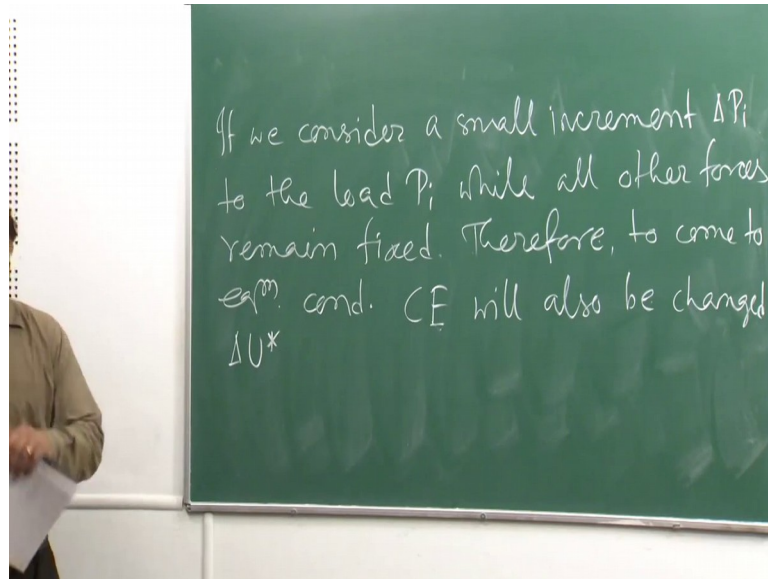 If we consider a small increment ΔPi
to the load Pi while all other forces
remain fixed. Therefore, to come to
eqᵐ. cond. CE will also be changed
ΔU*